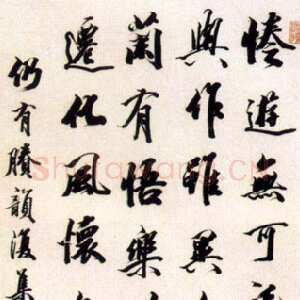 惓遊無可
與作雖異
蘭有悟樂
遷化風懷
仍有賸韻復集